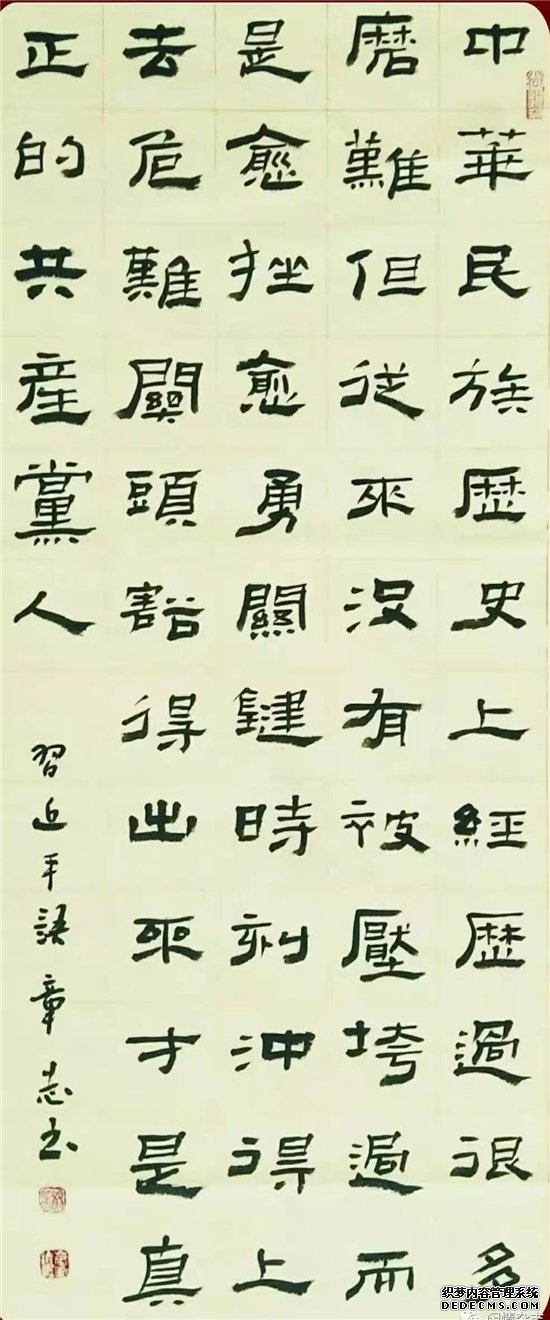 中華民族歷史上經歷過很多
磨難但從來沒有被壓垮過而
是愈挫愈勇關鍵時刻沖得上
去危難關頭豁得出來才是真
正的共產黨人
習近平語章志
织梦内容管理系统
DEDECMS.COM